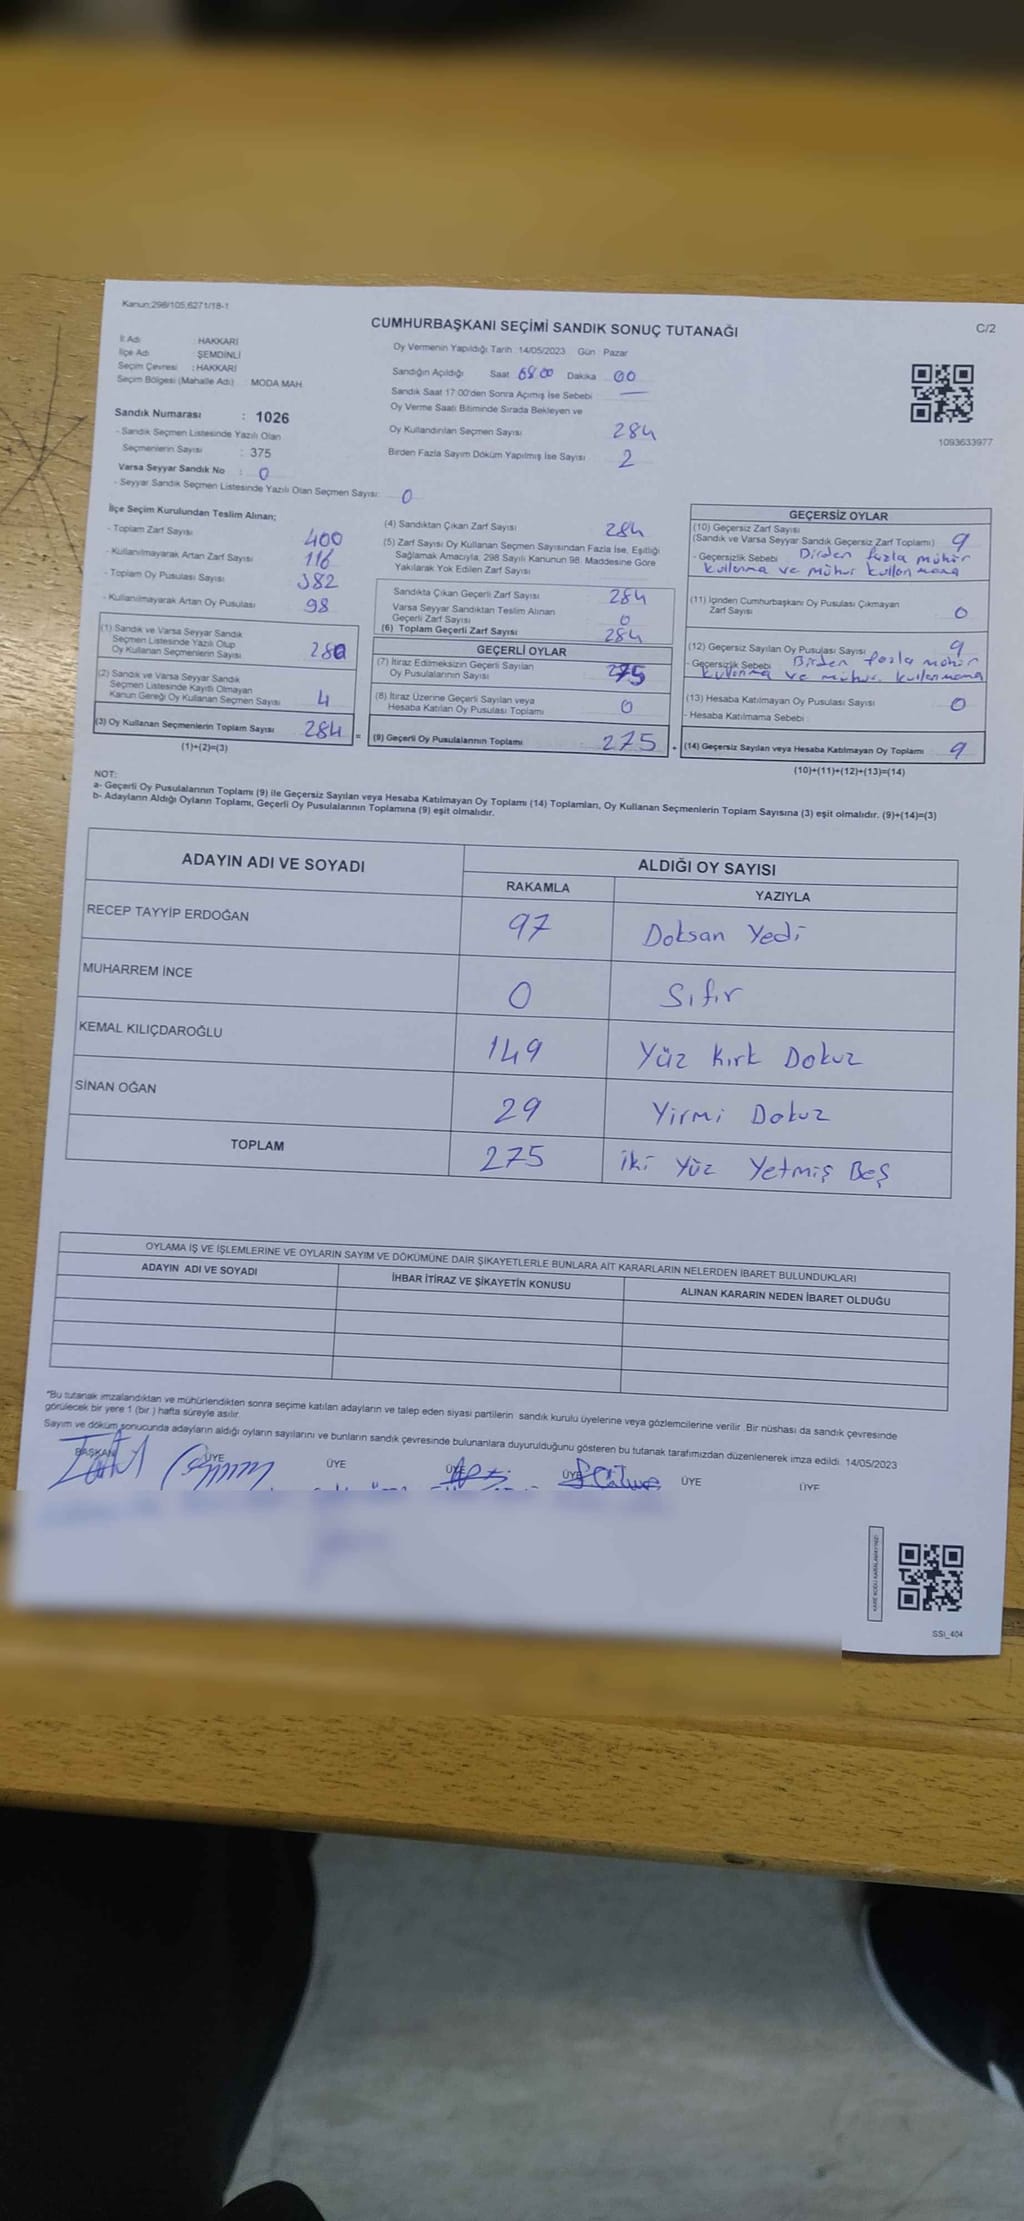 Kanun:298/105,6271/18-1
CUMHURBAŞKANI SEÇİMİ SANDIK SONUÇ TUTANAĞI
C/2
İl Adı : HAKKARİ
İlçe Adı : ŞEMDİNLİ
Seçim Çevresi : HAKKARİ
Seçim Bölgesi (Mahalle Adı) : MODA MAH.
Sandık Numarası : 1026
- Sandık Seçmen Listesinde Yazılı Olan
Seçmenlerin Sayısı : 375
Varsa Seyyar Sandık No : 0
- Seyyar Sandık Seçmen Listesinde Yazılı Olan Seçmen Sayısı: 0
Oy Vermenin Yapıldığı Tarih : 14/05/2023 Gün : Pazar
Sandığın Açıldığı Saat Dakika 00
Sandık Saat 17:00'den Sonra Açımış İse Sebebi —
Oy Verme Saati Bitiminde Sırada Bekleyen ve
Oy Kullandırılan Seçmen Sayısı 284
Birden Fazla Sayım Döküm Yapılmış İse Sayısı 2
1093633977
İlçe Seçim Kurulundan Teslim Alınan;
- Toplam Zarf Sayısı 400
- Kullanılmayarak Artan Zarf Sayısı 116
- Toplam Oy Pusulası Sayısı 382
- Kullanılmayarak Artan Oy Pusulası 98
(1) Sandık ve Varsa Seyyar Sandık
Seçmen Listesinde Yazılı Olup
Oy Kullanan Seçmenlerin Sayısı 280
(2) Sandık ve Varsa Seyyar Sandık
Seçmen Listesinde Kayıtlı Olmayan
Kanun Gereği Oy Kullanan Seçmen Sayısı 4
(3) Oy Kullanan Seçmenlerin Toplam Sayısı 284 =
(1)+(2)=(3)
(4) Sandıktan Çıkan Zarf Sayısı 284
(5) Zarf Sayısı Oy Kullanan Seçmen Sayısından Fazla İse, Eşitliği
Sağlamak Amacıyla, 298 Sayılı Kanunun 98. Maddesine Göre
Yakılarak Yok Edilen Zarf Sayısı
Sandıkta Çıkan Geçerli Zarf Sayısı 284
Varsa Seyyar Sandıktan Teslim Alınan
Geçerli Zarf Sayısı 0
(6) Toplam Geçerli Zarf Sayısı 284
GEÇERLİ OYLAR
(7) İtiraz Edilmeksizin Geçerli Sayılan
Oy Pusulalarının Sayısı 275
(8) İtiraz Üzerine Geçerli Sayılan veya
Hesaba Katılan Oy Pusulası Toplamı 0
(9) Geçerli Oy Pusulalarının Toplamı 275 +
GEÇERSİZ OYLAR
(10) Geçersiz Zarf Sayısı
(Sandık ve Varsa Seyyar Sandık Geçersiz Zarf Toplamı) 9
- Geçersizlik Sebebi Birden fazla mühür
kullanma ve mühür kullanmama
(11) İçinden Cumhurbaşkanı Oy Pusulası Çıkmayan
Zarf Sayısı 0
(12) Geçersiz Sayılan Oy Pusulası Sayısı 9
- Geçersizlik Sebebi Birden fazla mühür
kullanma ve mühür kullanmama
(13) Hesaba Katılmayan Oy Pusulası Sayısı 0
- Hesaba Katılmama Sebebi
(14) Geçersiz Sayılan veya Hesaba Katılmayan Oy Toplamı 9
(10)+(11)+(12)+(13)=(14)
NOT:
a- Geçerli Oy Pusulalarının Toplamı (9) ile Geçersiz Sayılan veya Hesaba Katılmayan Oy Toplamı (14) Toplamları, Oy Kullanan Seçmenlerin Toplam Sayısına (3) eşit olmalıdır. (9)+(14)=(3)
b- Adayların Aldığı Oyların Toplamı, Geçerli Oy Pusulalarının Toplamına (9) eşit olmalıdır.
ADAYIN ADI VE SOYADI ALDIĞI OY SAYISI
RAKAMLA YAZIYLA
RECEP TAYYİP ERDOĞAN 97 Doksan Yedi
MUHARREM İNCE 0 Sıfır
KEMAL KILIÇDAROĞLU 149 Yüz Kırk Dokuz
SİNAN OĞAN 29 Yirmi Dokuz
TOPLAM 275 İki Yüz Yetmiş Beş
OYLAMA İŞ VE İŞLEMLERİNE VE OYLARIN SAYIM VE DÖKÜMÜNE DAİR ŞİKAYETLERLE BUNLARA AİT KARARLARIN NELERDEN İBARET BULUNDUKLARI
ADAYIN ADI VE SOYADI İHBAR İTİRAZ VE ŞİKAYETİN KONUSU ALINAN KARARIN NEDEN İBARET OLDUĞU
*Bu tutanak imzalandıktan ve mühürlendikten sonra seçime katılan adayların ve talep eden siyasi partilerin sandık kurulu üyelerine veya gözlemcilerine verilir. Bir nüshası da sandık çevresinde
görülecek bir yere 1 (bir ) hafta süreyle asılır.
Sayım ve döküm sonucunda adayların aldığı oyların sayılarını ve bunların sandık çevresinde bulunanlara duyurulduğunu gösteren bu tutanak tarafımızdan düzenlenerek imza edildi. 14/05/2023
BAŞKAN ÜYE ÜYE ÜYE ÜYE ÜYE ÜYE
SSI_404